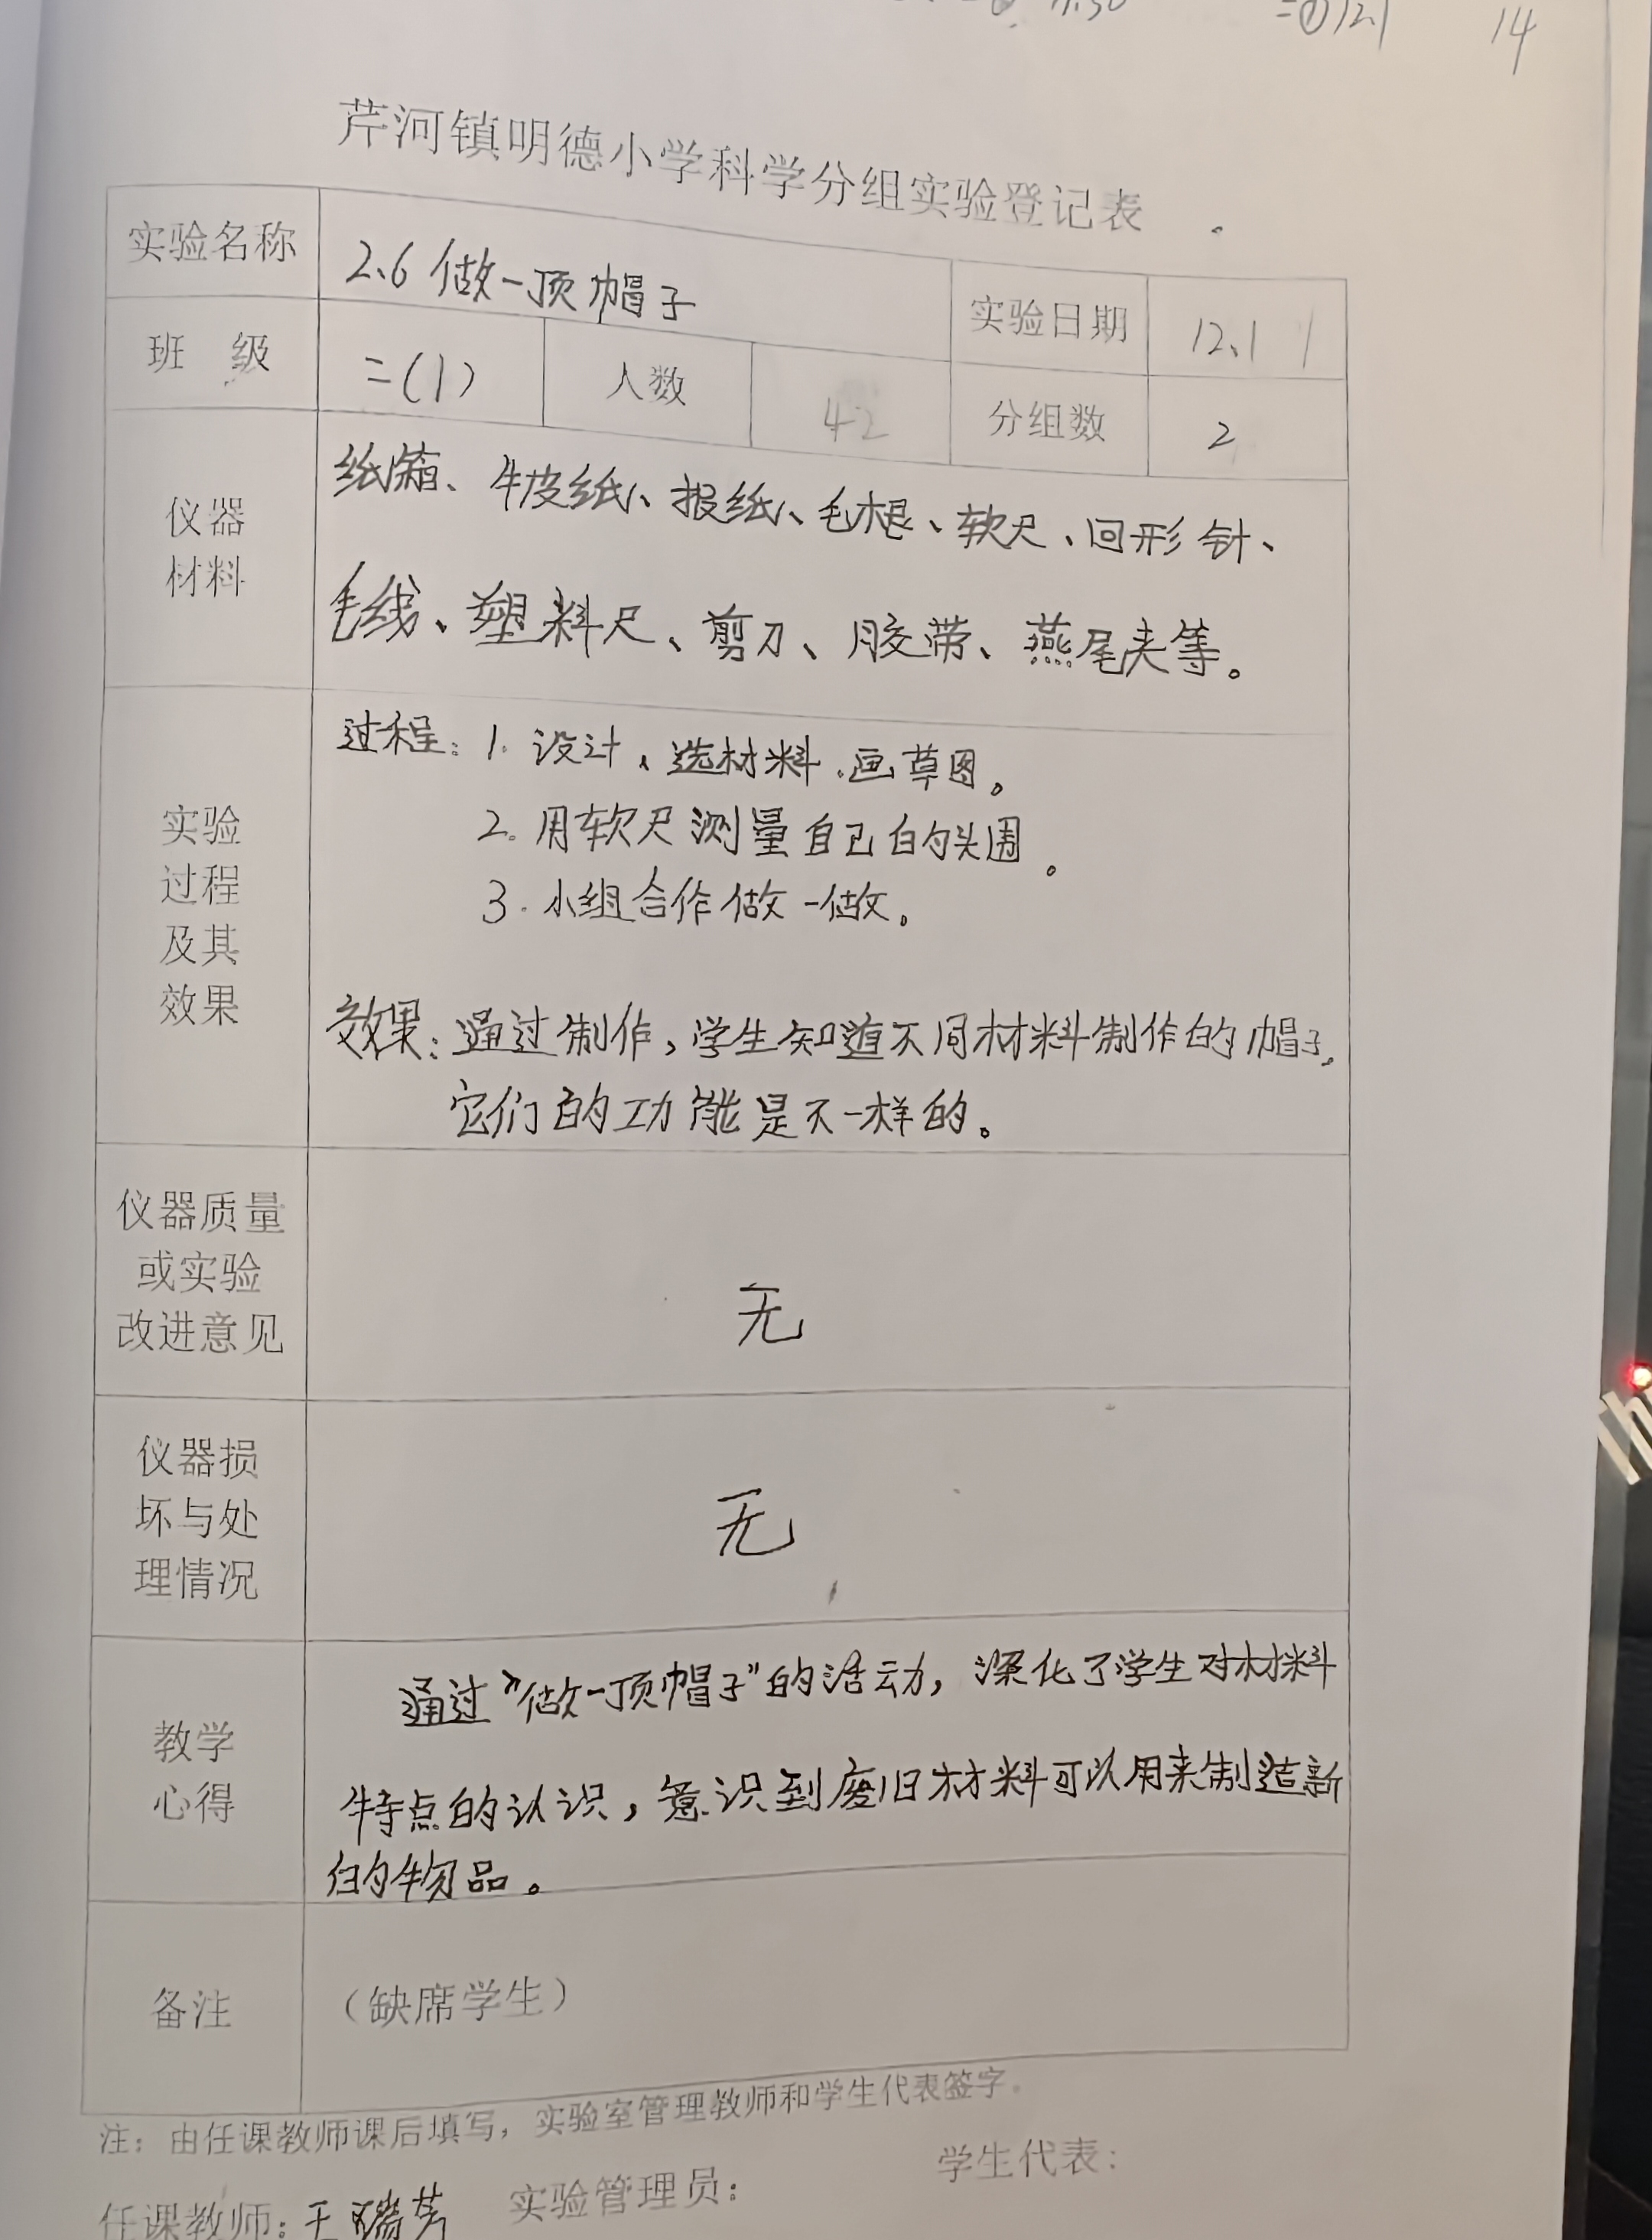 =①12.1 14
芹河镇明德小学科学分组实验登记表
实验名称 2.6 做一顶帽子 实验日期 12.1
班 级 二(1) 人数 42 分组数 2
仪器
材料
纸箱、牛皮纸、报纸、毛根、软尺、回形针、
毛线、塑料尺、剪刀、胶带、燕尾夹等。
实验
过程
及其
效果
过程：1. 设计、选材料、画草图。
2. 用软尺测量自己的头围。
3. 小组合作做一做。
效果：通过制作，学生知道不同材料制作的帽子，
它们的功能是不一样的。
仪器质量
或实验
改进意见
无
仪器损
坏与处
理情况
无
教学
心得
通过"做一顶帽子"的活动，深化了学生对材料
特点的认识，意识到废旧材料可以用来制造新
的物品。
备注 （缺席学生）
注：由任课教师课后填写，实验室管理教师和学生代表签字。
任课教师：王瑞芳 实验管理员： 学生代表：